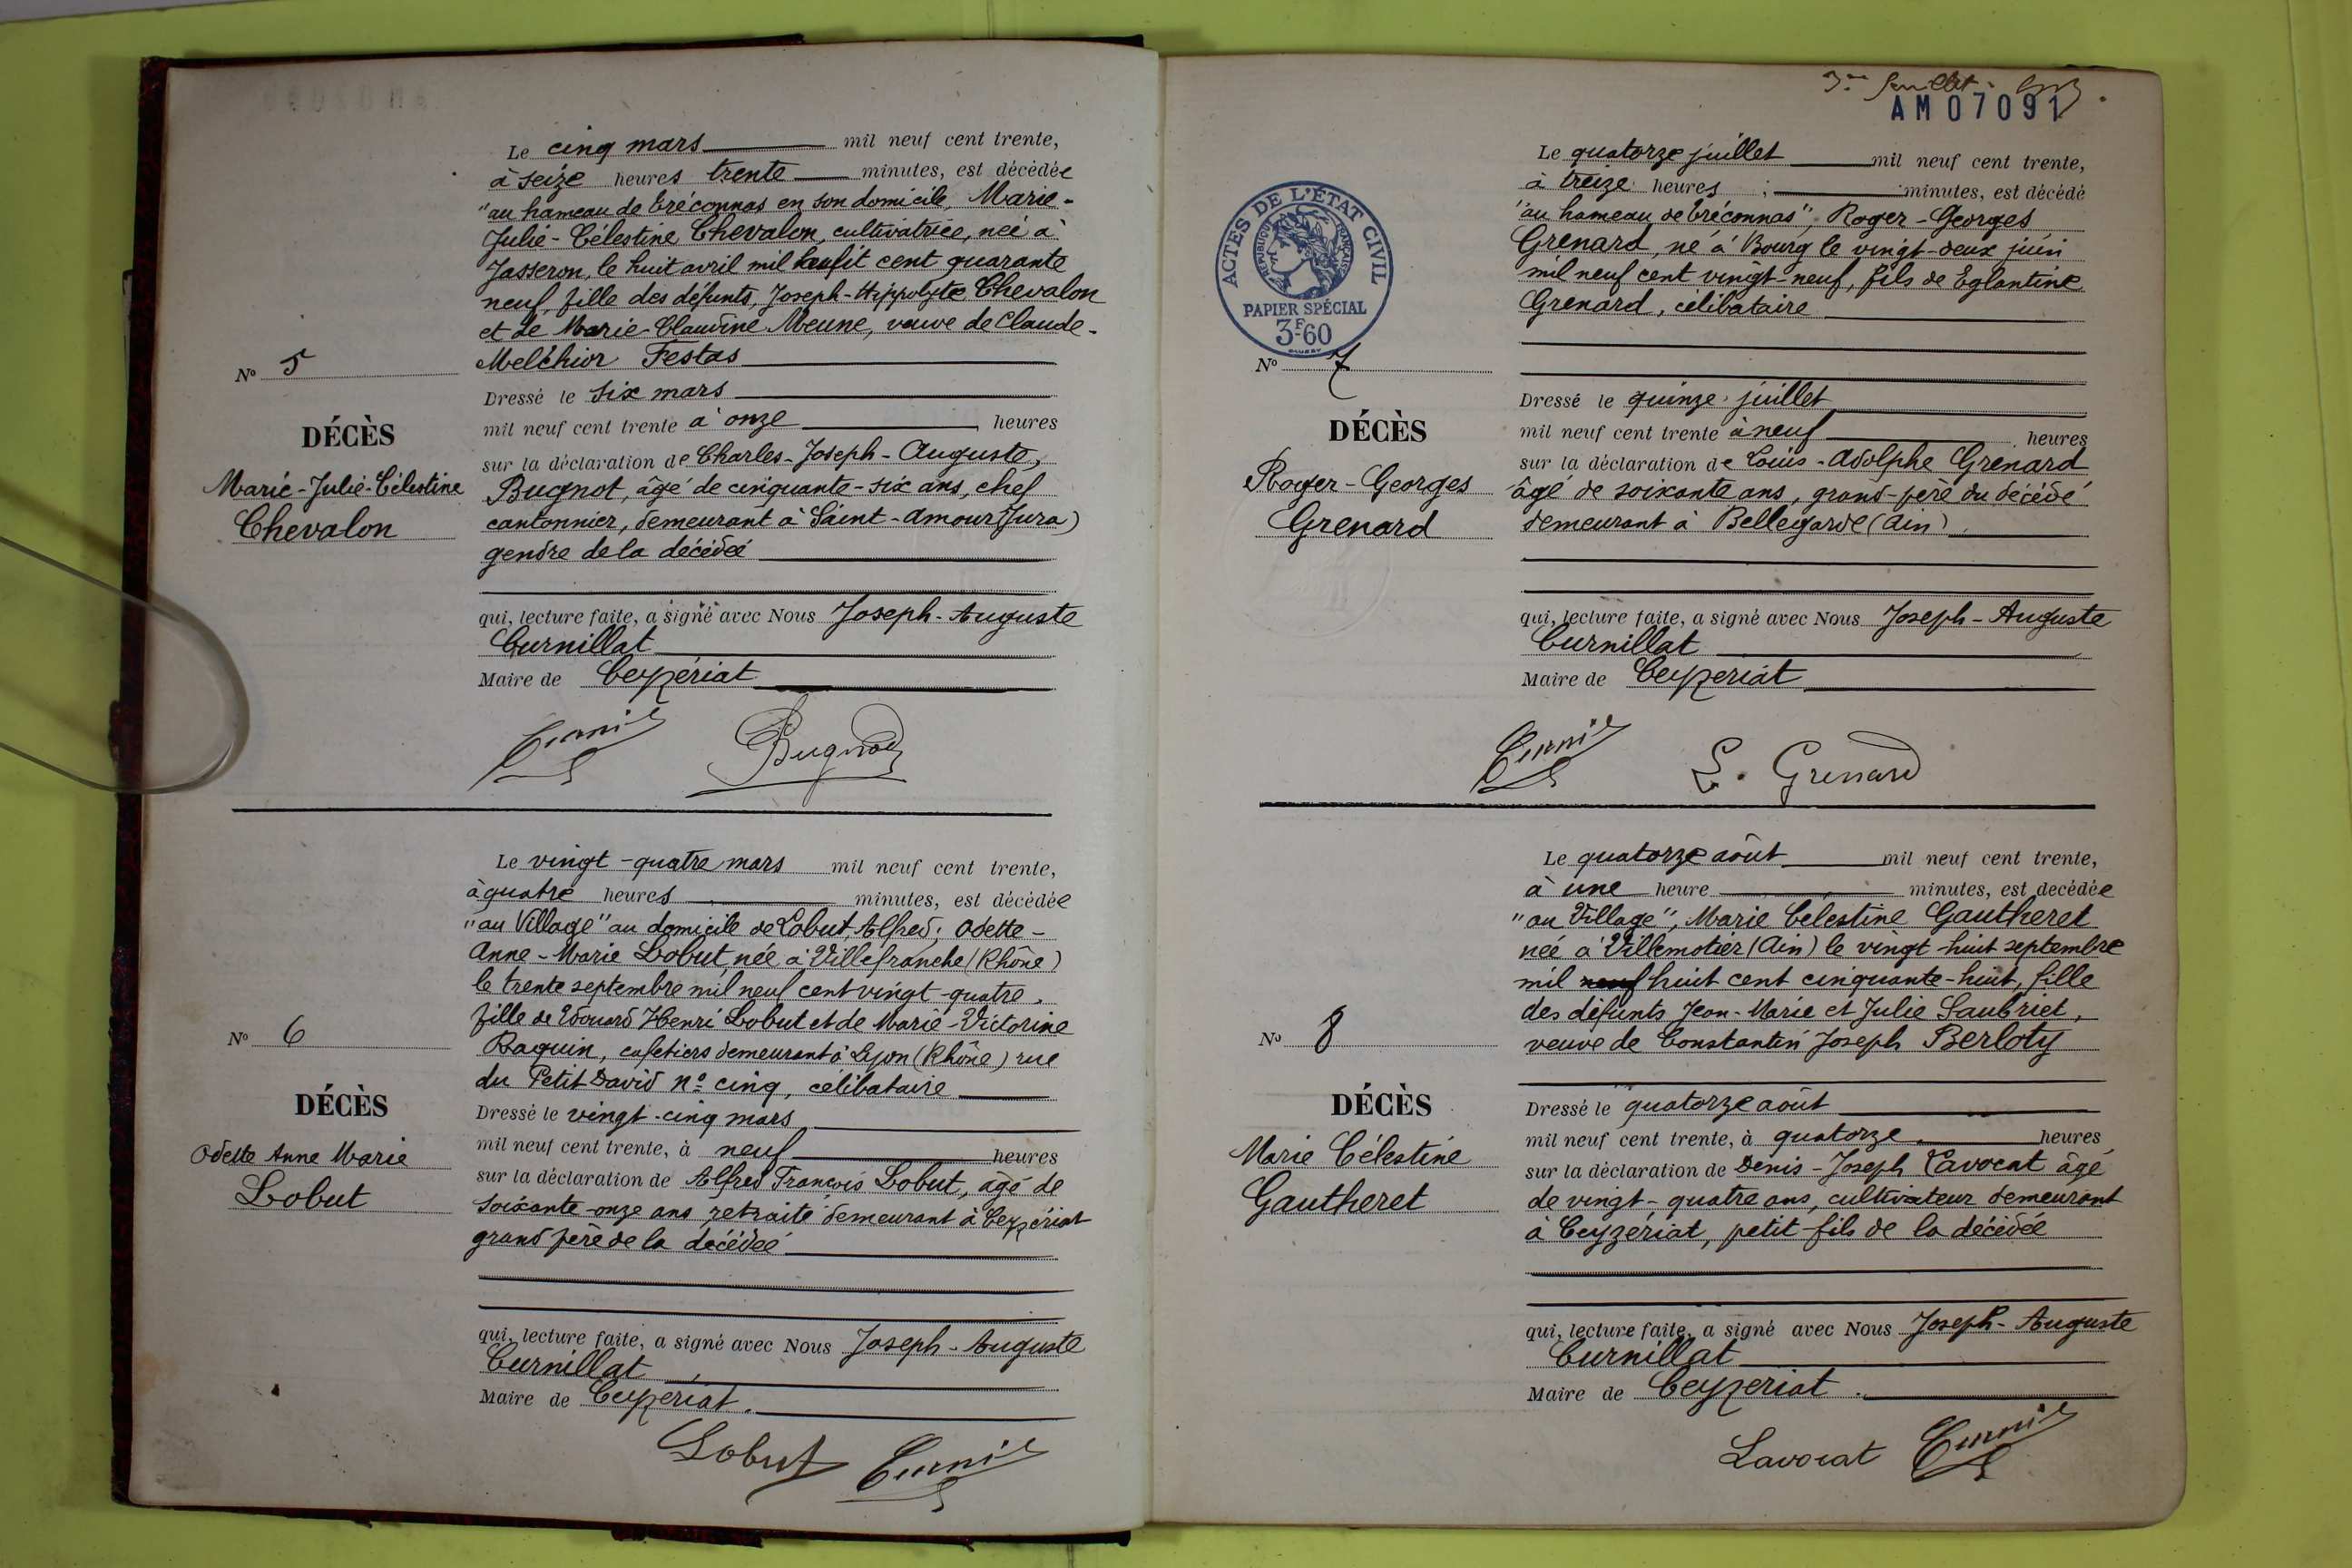 Le cinq mars mil neuf cent trente,
à seize heures trente minutes, est décédée
"au hameau de Tréconnas en son domicile, Marie-
Julie-Célestine Chevalon, cultivatrice, née à
Jasseron, le huit avril mil huit cent quarante
neuf, fille des défunts, Joseph-Hippolyte Chevalon
et de Marie-Claudine Meune, veuve de Claude-
Melchior Festas
Nº 5
Dressé le six mars
mil neuf cent trente à onze heures
DÉCÈS
sur la déclaration de Charles-Joseph-Auguste,
Marie-Julie-Célestine
Bugnot, âgé de cinquante-six ans, chef
Chevalon
cantonnier, demeurant à Saint-Amour (Jura)
gendre de la décédée
qui, lecture faite, a signé avec Nous Joseph-Auguste
Curnillat
Maire de Ceyzériat
Bugnot
Le vingt-quatre mars mil neuf cent trente,
à quatre heures minutes, est décédée
"au Village" au domicile de Lobut, Alfred, Odette-
Anne-Marie Lobut, née à Villefranche (Rhône)
le trente septembre mil neuf cent vingt-quatre,
fille de Edouard Henri Lobut et de Marie-Victorine
Nº 6
Raquin, cafetiers demeurant à Lyon (Rhône) rue
du Petit David nº cinq, célibataire
DÉCÈS
Dressé le vingt-cinq mars
mil neuf cent trente, à neuf heures
Odette Anne Marie
sur la déclaration de Alfred François Lobut, âgé de
Lobut
soixante-onze ans retraité demeurant à Ceyzériat
grand père de la décédée
qui, lecture faite, a signé avec Nous Joseph-Auguste
Curnillat
Maire de Ceyzériat.
Lobut
3me feuillet
AM07091
Le quatorze juillet mil neuf cent trente,
à treize heures minutes, est décédé
"au hameau de Tréconnas", Roger-Georges
Grenard, né à Bourg le vingt-deux juin
mil neuf cent vingt-neuf, fils de Eglantine
Grenard, célibataire
ACTES DE L'ÉTAT CIVIL
RÉPUBLIQUE FRANÇAISE
PAPIER SPÉCIAL
3F60
Nº 7
Dressé le quinze juillet
mil neuf cent trente à neuf heures
DÉCÈS
sur la déclaration de Louis-Adolphe Grenard
Roger-Georges
âgé de soixante ans, grand-père du décédé
Grenard
demeurant à Bellegarde (Ain)
qui, lecture faite, a signé avec Nous Joseph-Auguste
Curnillat
Maire de Ceyzériat
L. Grenard
Le quatorze août mil neuf cent trente,
à une heure minutes, est décédée
"au Village", Marie Célestine Gautheret
née à Villemotier (Ain) le vingt-huit septembre
mil neuf huit cent cinquante-huit, fille
des défunts Jean-Marie et Julie Saubriet,
Nº 8
veuve de Constantin Joseph Berloty
DÉCÈS
Dressé le quatorze août
mil neuf cent trente, à quatorze heures
Marie Célestine
sur la déclaration de Denis-Joseph Lavocat âgé
Gautheret
de vingt-quatre ans, cultivateur demeurant
à Ceyzériat, petit-fils de la décédée
qui, lecture faite, a signé avec Nous Joseph-Auguste
Curnillat
Maire de Ceyzériat.
Lavocat